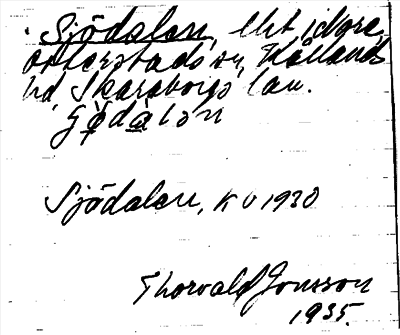 Sjödalen, lht, i Norra
Öfterstads sn, Kållands
hd, Skaraborgs län.
Sjödalen, KU 1930
Thorvald Jonsson
1935.